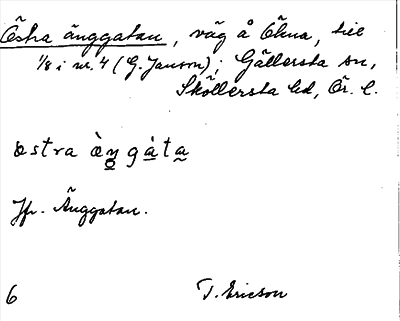 Östra änggatan, väg å Ökna, till
1/8 i nr. 4 (G. Janson); Gällersta sn,
Sköllersta hd, Ör. l.
östra ä̀ŋgáta
Jfr. Änggatan.
6 T. Ericson